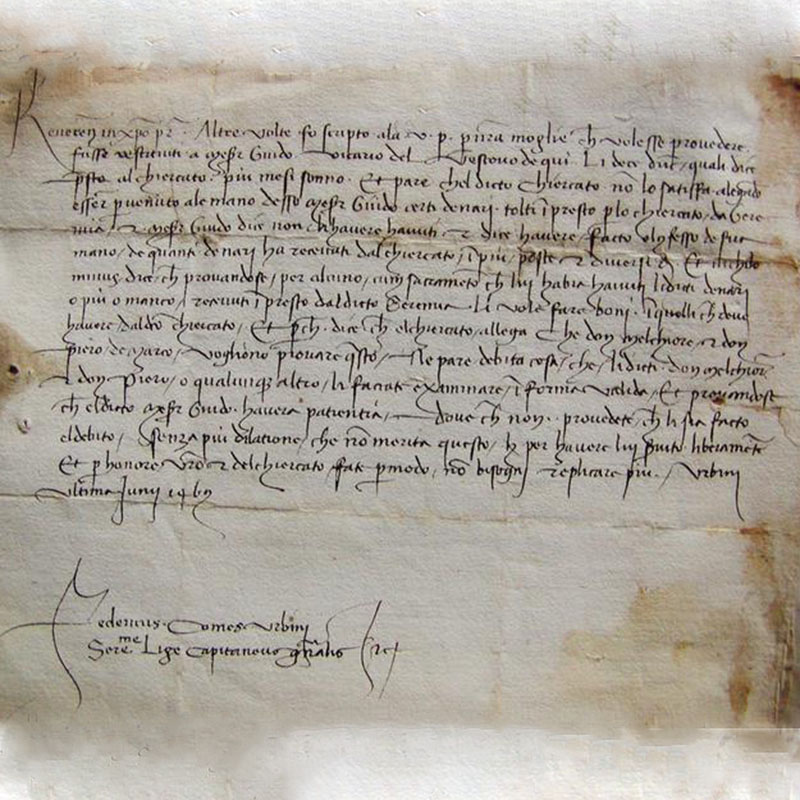 Reveren in xpo pr. Altre volte fo scripto ala v. p. moglie ch volesse provedere
fusse restituiti a Meser Guido Vicario del Vescovo de qui. Li dece duc. quali dice
al chiercato più mesi sonno. Et pare chel dicto Chiercato nō lo satisfa
esser pvenuto ale mano desso Meser Guido certi denari tolti ī presto plo chiercato, da
Meser Guido dice non li havere havuti et dice havere facto
mano, de quanti denari ha receuti dal chiercato, ī più poste et diversi dì. Et
minus dice ch provandose, per alcuno, cum sacrameto ch lui habia havuti li dicti denari
o più o manco, receuti ī presto dal dicto, Li vole fare boni. ī quelli ch deve
havere dal dco chiercato, Et pch dice ch el chiercato, allega Che don Melchiore, et don
Piero de Marco, Vogliono provare qsto, Ne pare debita cosa, che li dicti don Melchior
et don Piero, o qualunq altro, li faciate examinare, ī forma valida, Et provandose
ch el dicto Meser Guido haverà patientia, dove ch non. provedete ch li sia facto
el debito, senza più dilatione, che nō merita questo, per havere lui servito liberamete
Et p honore vro et del chiercato fate p modo, nō bisogni replicare più. Urbini
ultima Junij 1469
Federicus Comes Urbini
Sereme Lige Capitaneus gnralis